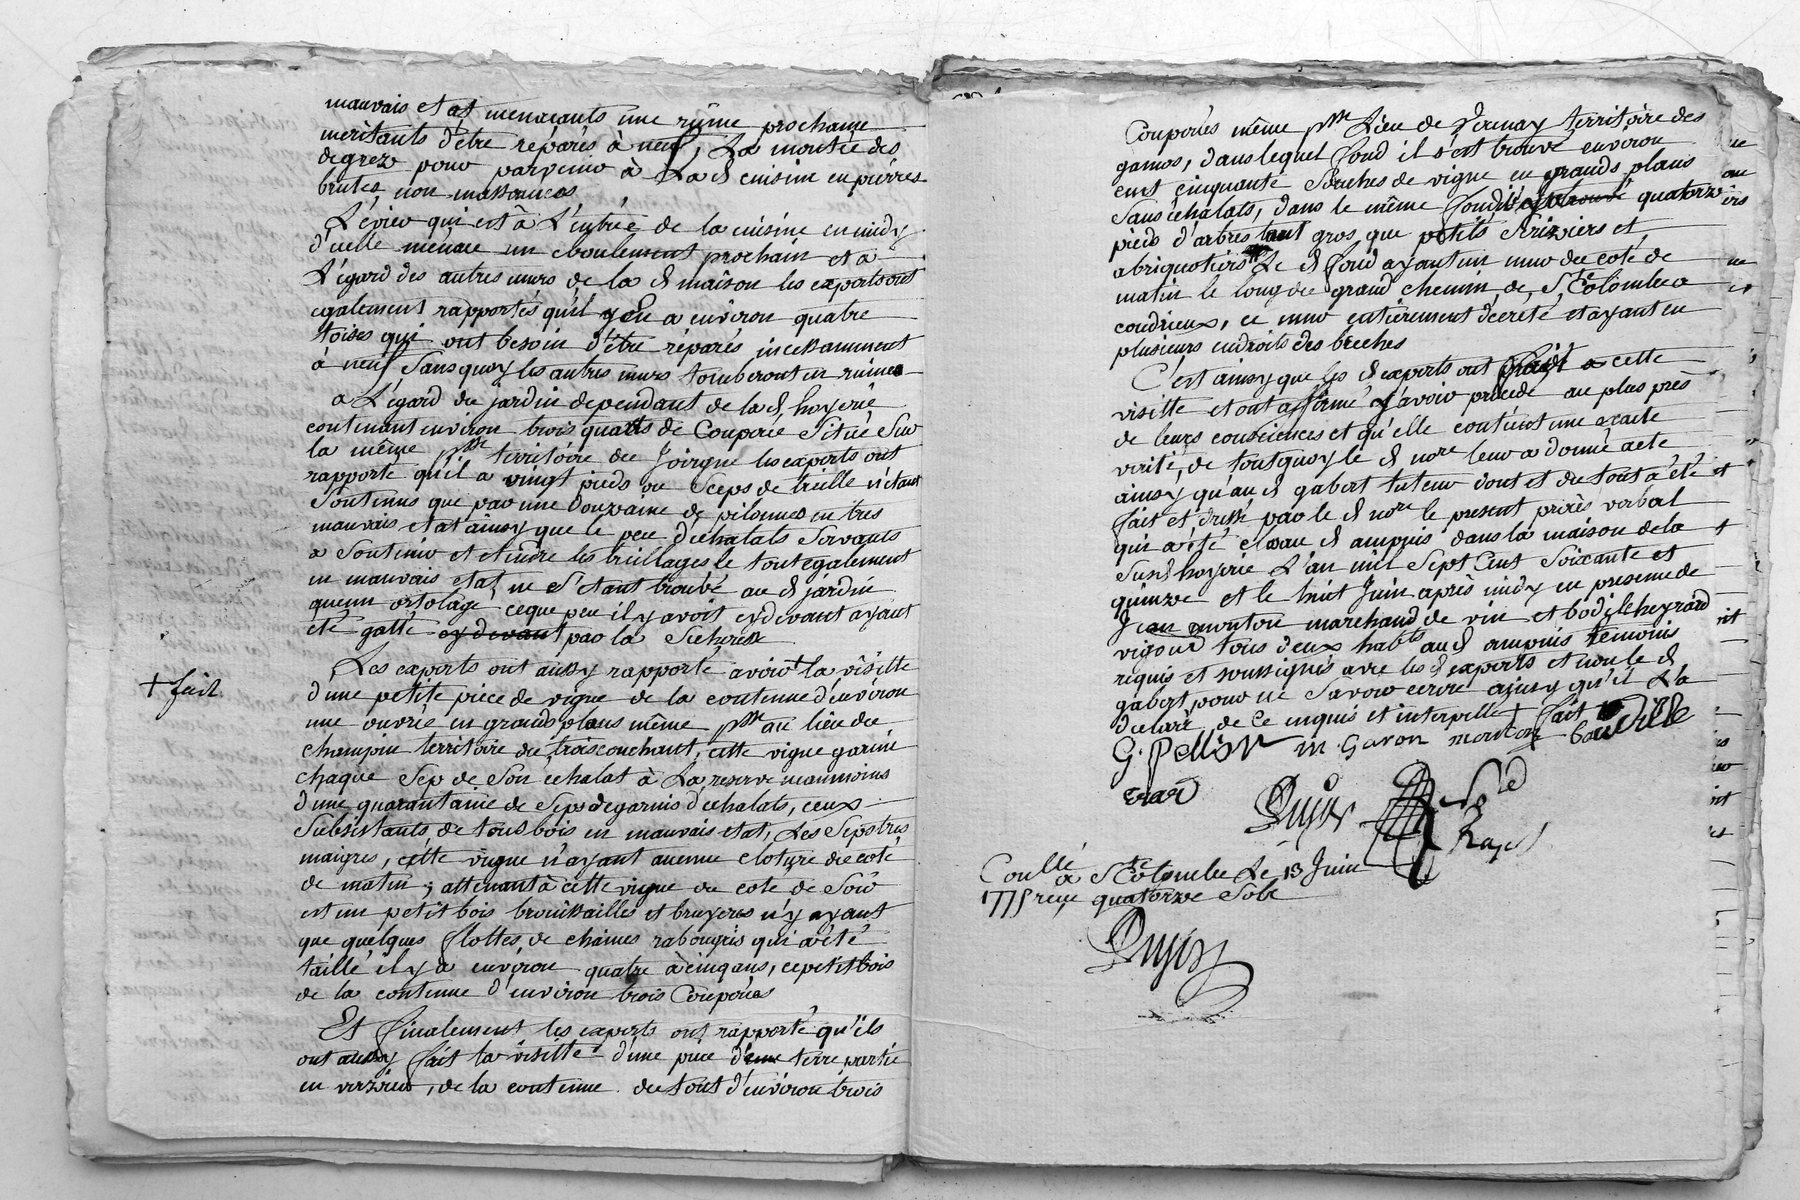 mauvais etat menacants une rüine prochaine
meritants d'être réparés à neuf, La montée des
degrez pour parvenir à La d cuisine en pierres
brutes non massonnées
L'évier qui est à L'entrée de la cuisine en midy
d'icelle menace un eboulement prochain et a
L'égard des autres murs de la d maison les experts ont
egalement rapportés qu'il y en a environ quatre
toises qui ont besoin d'être réparés incessamment
à neuf Sans quoy les autres murs tomberont en ruines
a L'égard du jardin dependant de la d. hoyerie
contenant environ trois quarts de Couperée Situé Sur
la même psse territoire de Joirgne les experts ont
rapporté qu'il a vingt pieds ou Seeps de treille n'étant
Soutenus que par une douzaine de pilonnes en très
mauvais etat ainsy que le peu d'échalats Servants
a Soutenir et etendre les treillages le tout egalement
en mauvais etat, ne S'étant trouvé au d jardin
aucun ortolage, ceque peu il y avoit cydevant ayant
été gatté cydevant par la Sicheresse
Les experts ont aussy rapporté avoir + la visitte
+ fait
d'une petite piece de vigne de la contenue d'environ
une ouvrée en grands plans même psse au lieu de
champin territoire du trois couchant, cette vigne garnie
chaque Sep de Son échalat à La reserve neanmoins
d'une quarantaine de Seps degarnis d'echalats, ceux
Subsistants de tous bois en mauvais etat, Les Seps tres
maigres, cette vigne n'ayant aucune cloture du coté
de matin; attenant à cette vigne du coté de Soir
est un petit bois brouissailles et bruyeres n'y ayant
que quelques flottes de chaines rabougris qui a été
taillé il y a environ quatre à cinq ans, ce petit bois
de la contenue d'environ trois Couperées
Et finalement les experts ont rapporté qu'ils
ont aussy fait la visitte d'une piece d'une terre partie
en verziere, de la contenue du tout d'environ trois
Couperées même psse Lieu de Vernay territoire des
gamos, dans lequel fond il s'est trouvé environ
cent cinquante Souches de vigne en grands plans
Sans échalats, dans le même fond quatorze
pieds d'arbres tant gros que petits Cerisiers et
abriquotiers Le d fond ayant un mur du coté de
matin le long du grand chemin de Ste Colombe a
condrieux, ce mur entierement decreté, et ayant en
plusieurs endroits des breches
C'est ainsy que les d experts ont fait cette
visitte et ont affirmé y avoir procedé au plus près
de leurs consciences et qu'elle contient une exacte
vérité, de tout quoy le d nore leur a donné acte
ainsy qu'au d gabert tuteur dont et du tout a été
fait et dressé par le d nore le present procès verbal
qui a été clos au d ampuis dans la maison de la
Susd hoyerie L'an mil Sept Cent Soixante et
quinze et le huit Juin après midy en presence de
Jean monton marchand de vin et bodile heyraud
vigour tous deux habts au d ampuis témoins
requis et soussignés avec les d experts et non le d
gabert pour ne Savoir ecrire ainsy qu'il L'a
declaré de ce enquis et interpellé + fait
G. Pellion m. Gavon monton baudille
erard
Controllé
à Ste Colombe Le 13 Juin
1775 reçu quatorze Sols